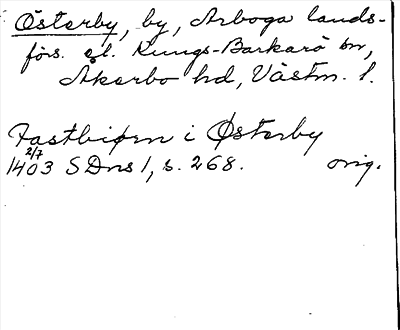 Österby, by, Arboga lands-
förs. el. Kungs-Barkarö sn,
Åkerbo hd, Västm. l.
Fastbiørn i Østerby
1403 2/7 SDns 1, s. 268. orig.